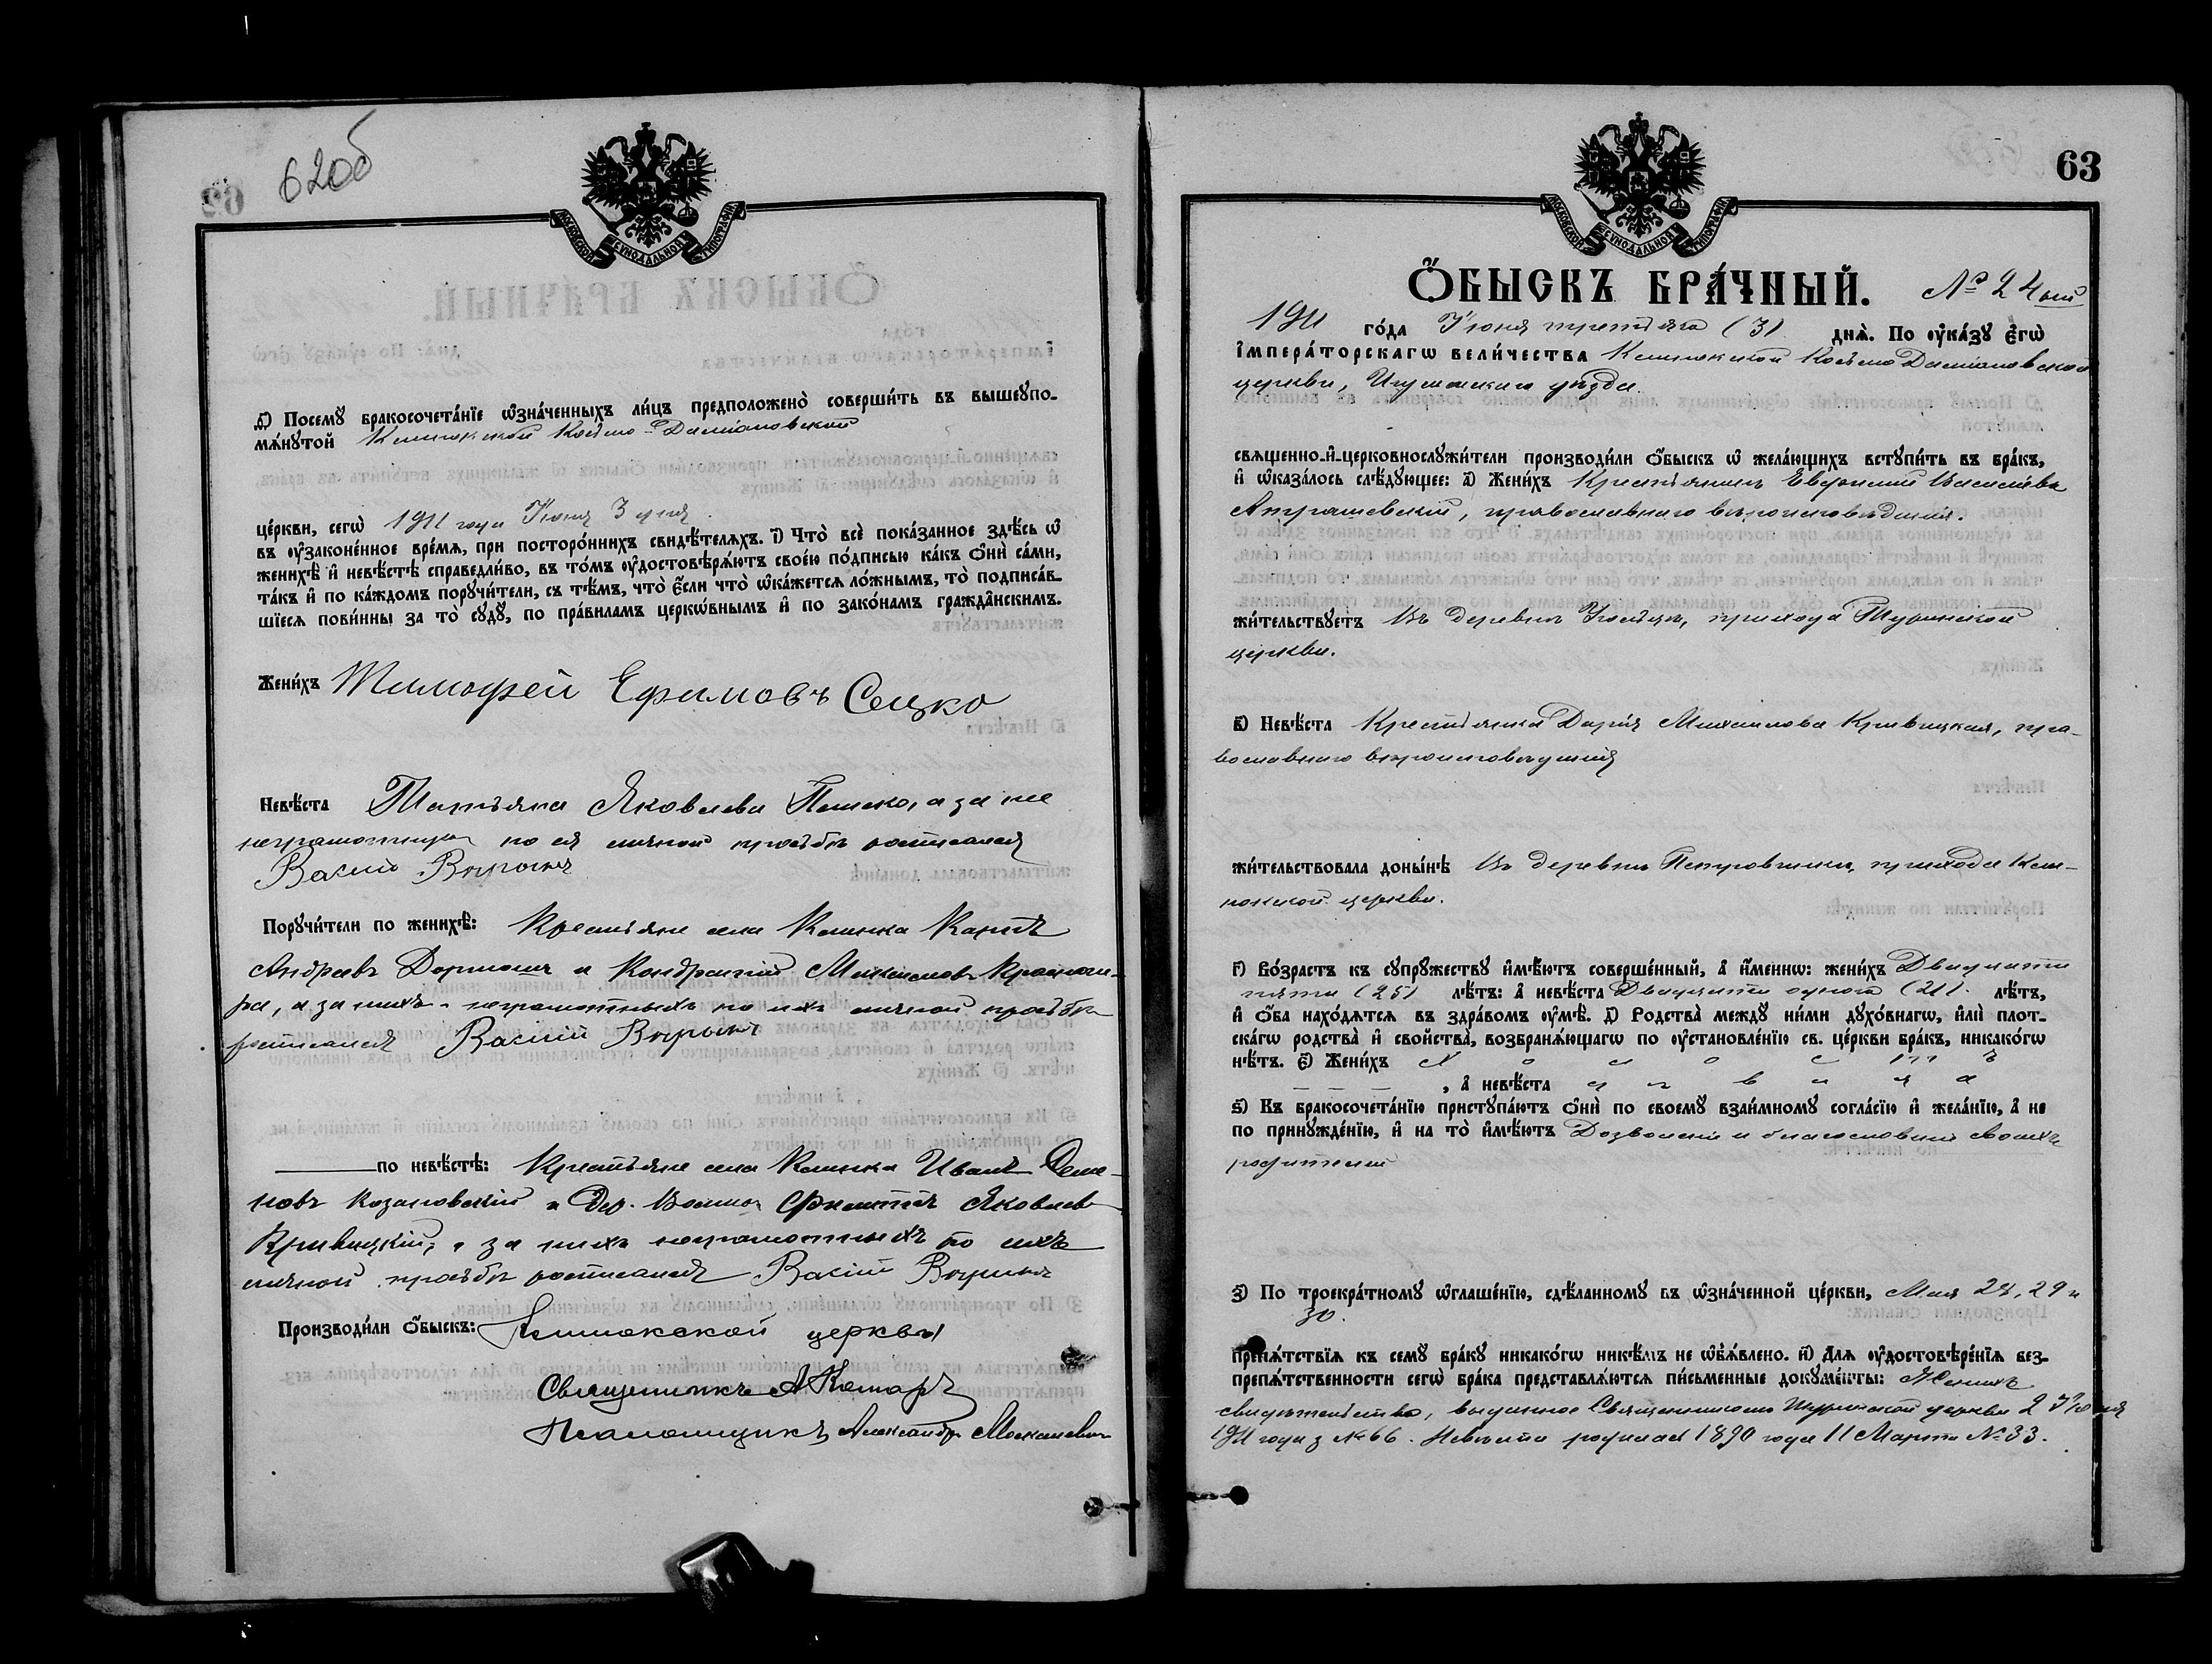 62об
МОСКОВСКОЙ СѴНОДАЛЬНОЙ ТИПОГРАФІИ
д҃) Посемꙋ̀ бракосочета́нїе ѡ҆зна́ченныхъ ли́цъ предположено̀ соверши́ть въ вышеꙋпо-
мѧ́нꙋтой Клинокской Косьмо-Даміановской
це́ркви, сегѡ̀ 1911 года Іюня 3 дня
въ ᲂу҆законе́нное вре́мѧ, при посторо́ннихъ свидѣ́телѧхъ. і҃) Что̀ всѐ пока́занное здѣ́сь ѡ҆
женихѣ̀ и҆ невѣ́стѣ справедли́во, въ то́мъ ᲂу҆достовѣрѧ́ютъ свое́ю по́дписью ка́къ ѻ҆нѝ са́ми,
та́къ и҆ по ка́ждомъ порꙋчи́тели, съ тѣ́мъ, что̀ є҆́сли что̀ ѡ҆ка́жетсѧ ло́жнымъ, то̀ подписа́в-
шїесѧ пови́нны за то̀ сꙋдꙋ̀, по пра́виламъ церкѡ́внымъ и҆ по зако́намъ гражда̑нскимъ.
Жени́хъ Тимофей Ефимовъ Сецко
Невѣ́ста Татьяна Яковлева Пешко, а за нее
неграмотную по ея личной просьбѣ росписался
Василій
Порꙋчи́тели по женихѣ̀: Крестьяне села Клинка Карпъ
Андреевъ и Кондратій Максимовъ
а за нихъ неграмотныхъ по ихъ личной просьбѣ
росписался Василій
по невѣ́стѣ: Крестьяне села Клинка Иванъ Семе-
новъ Козаковскій и Дер. Волино Филиппъ Яковлевъ
Кривицкій, а за нихъ неграмотныхъ по ихъ
личной просьбѣ росписался Василій
Производи́ли ѻ҆́быскъ: Клинокской церкви
Священникъ А Комаръ
Псаломщикъ Александръ
63
МОСКОВСКОЙ СѴНОДАЛЬНОЙ ТИПОГРАФІИ
Ѻ҆́БЫСКЪ БРА́ЧНЫЙ. № 24ый
1911 го́да Іюня третьяго (3) днѧ̀. По ᲂу҆ка́зꙋ є҆гѡ̀
і҆мпера́торскагѡ вели́чества Клинокской Косьмо Даміановской
церкви, Игуменскаго уѣзда.
свѧщенно-и҆-церковнослꙋжи́тели производи́ли ѻ҆́быскъ ѡ҆ жела́ющихъ встꙋпи́ть въ бра́къ,
и҆ ѡ҆каза́лось слѣ́дꙋющее: а҃) Жени́хъ Крестьянинъ Евфимій Васильевъ
Атрашевскій, православнаго вѣроисповѣданія.
жи́тельствꙋетъ Въ деревнѣ прихода Туринской
церкви.
в҃) Невѣ́ста Крестьянка Дарія Михаилова Кривицкая, пра-
вославнаго вѣроисповѣданія
жи́тельствовала доны́нѣ Въ деревнѣ Петровщинѣ, прихода Кли-
нокской церкви.
г҃) Во́зрастъ къ сꙋпрꙋ́жествꙋ и҆мѣ́ютъ соверше́нный, а҆ и҆́меннѡ: жени́хъ Двадцати
пяти (25) лѣ́тъ: а҆ невѣ́ста Двадцати одного (21) лѣ́тъ,
и҆ ѻ҆́ба нахо́дѧтсѧ въ здра́вомъ ᲂу҆мѣ̀. д҃) Родства̀ междꙋ̀ ни́ми дꙋхо́внагѡ, и҆лѝ плот-
ска́гѡ родства̀ и҆ сво́йства, возбранѧ́ющагѡ по ᲂу҆становле́нїю св. це́ркви бра́къ, никако́гѡ
нѣ́тъ. є҃) Жени́хъ х о л о с т ъ
, а҆ невѣ́ста д ѣ в и ц а
ѕ҃) Къ бракосочета́нїю пристꙋпа́ютъ ѻ҆нѝ по своемꙋ̀ взаи́мномꙋ согла́сїю и҆ жела́нїю, а҆ не
по принꙋжде́нїю, и҆ на то̀ и҆мѣ́ютъ Дозволеніе и благословеніе своихъ
родителей
з҃) По троекра́тномꙋ ѡ҆глаше́нїю, сдѣ́ланномꙋ въ ѡ҆зна́ченной це́ркви, Мая 22, 29 и
30.
препѧ́тствїѧ къ семꙋ̀ бра́кꙋ никако́гѡ никѣ́мъ не ѡ҆б̾ѧ́влено. и҃) Длѧ̀ ᲂу҆достовѣре́нїѧ без-
препѧ́тственности сегѡ̀ бра́ка представлѧ́ютсѧ пи́сьменные докꙋме́нты: Женихъ
свидѣтельство, выданное Священникомъ Туринской церкви 2 Іюня
1911 года з № 66. Невѣста родилась 1890 года 11 Марта № 33.